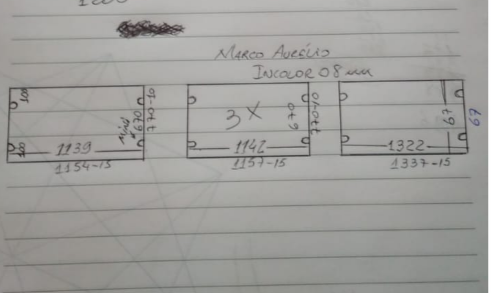 MARCO AURÉLIO
INCOLOR 08 mm
100
100
1139
1154-15
670
770-10
3X
1142
1157-15
670
1322
1337-15
67
69